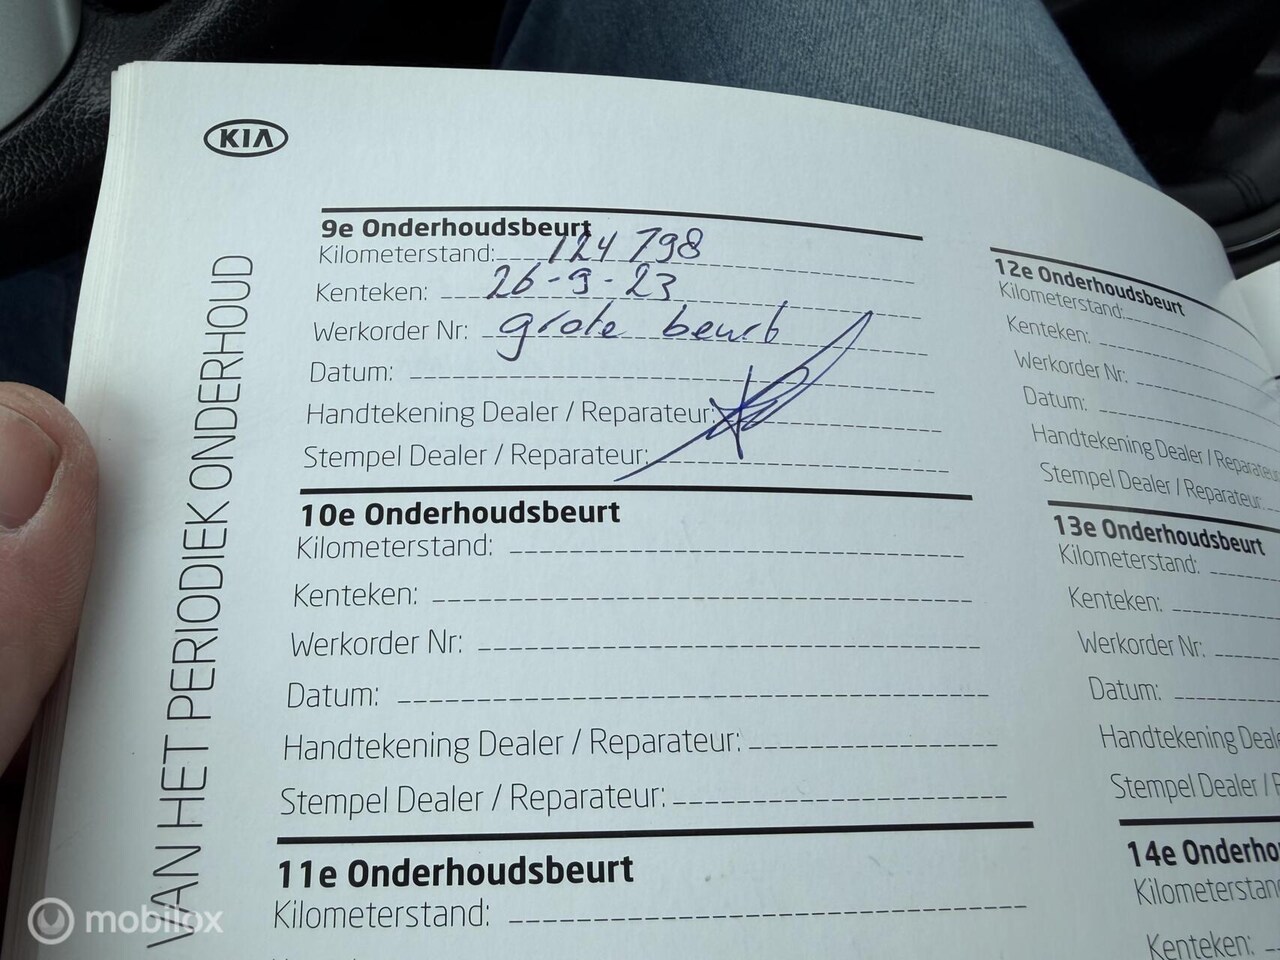 KIA
VAN HET PERIODIEK ONDERHOUD
9e Onderhoudsbeurt
Kilometerstand: 124 798
Kenteken: 26-9-23
Werkorder Nr: grote beurt
Datum:
Handtekening Dealer / Reparateur:
Stempel Dealer / Reparateur:
10e Onderhoudsbeurt
Kilometerstand:
Kenteken:
Werkorder Nr:
Datum:
Handtekening Dealer / Reparateur:
Stempel Dealer / Reparateur:
11e Onderhoudsbeurt
Kilometerstand:
12e Onderhoudsbeurt
Kilometerstand:
Kenteken:
Werkorder Nr:
Datum:
Handtekening Dealer / Reparateur
Stempel Dealer / Reparateur:
13e Onderhoudsbeurt
Kilometerstand:
Kenteken:
Werkorder Nr:
Datum:
Handtekening Deal
Stempel Dealer / R
14e Onderho
Kilometerstan
Kenteken:
mobilox